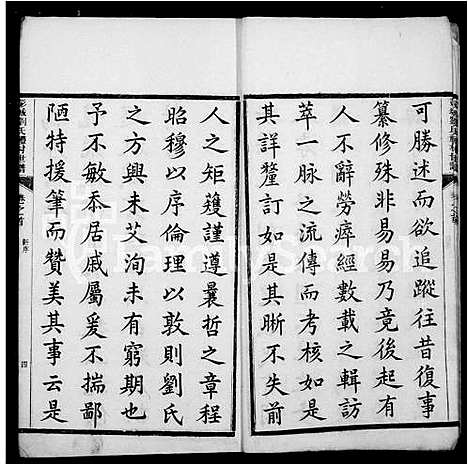 可勝述而欲追蹤往昔復事
纂修殊非易易乃竟後起有
人不辭勞瘁經數載之輯訪
萃一脉之流傳而考核如是
其詳釐訂如是其晰不失前
人之矩蒦謹遵曩哲之章程
昭穆以序倫理以敦則劉氏
之方興未艾洵未有窮期也
予不敏忝居戚屬爰不揣鄙
陋特援筆而贊美其事云是
彭城劉氏
卷之首
四
FamilySearch